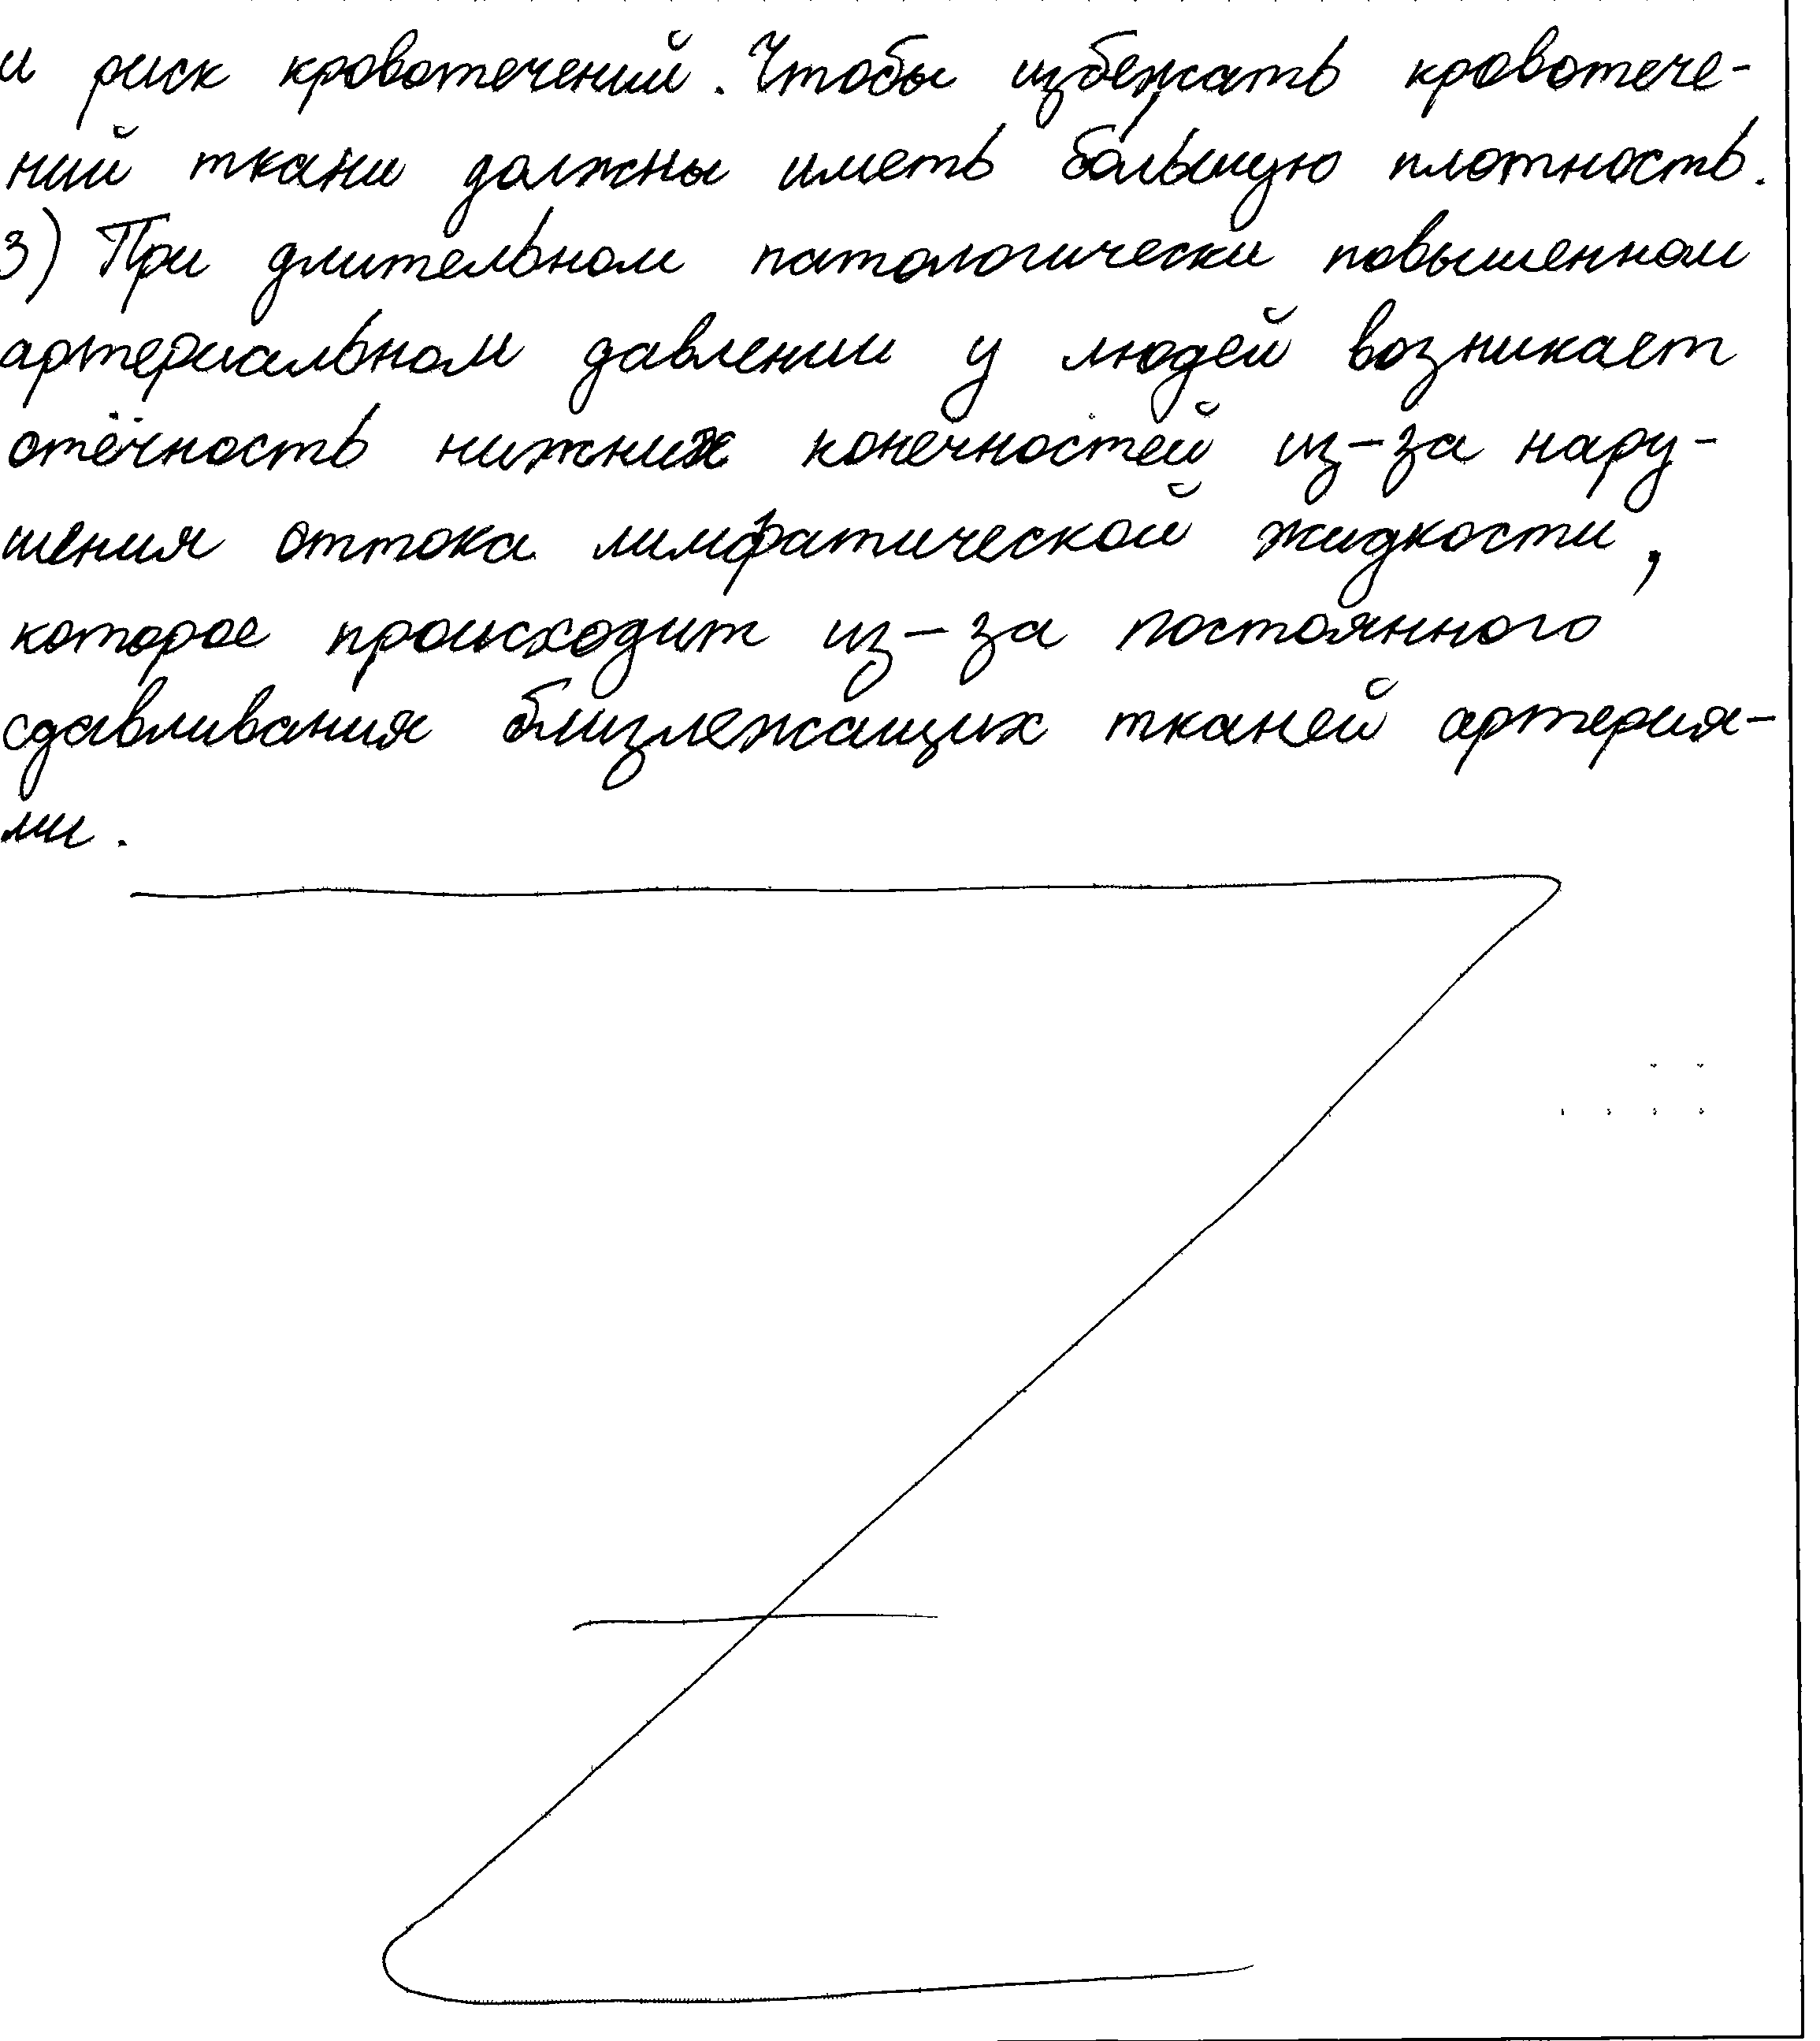 и риск кровотечений. Чтобы избежать кровотече-
ний ткани должны иметь большую плотность.
3) При длительном патологически повышенном
артериальном давлении у людей возникает
отёчность нижних конечностей из-за нару-
шения оттока лимфатической жидкости,
которое происходит из-за постоянного
сдавливания близлежащих тканей артерия-
ми.